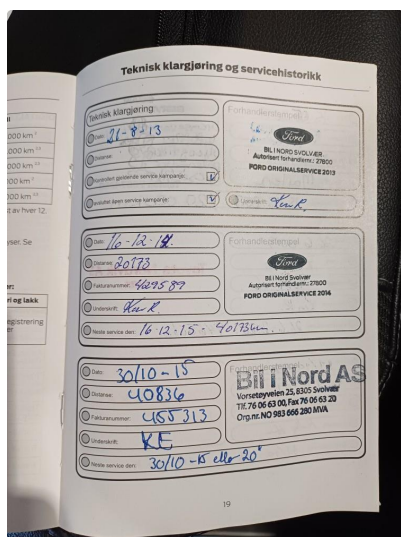 000 km
000 km
000 km
00 km
000 km
st av hver 12.
yser. Se
er:
ri og lakk
egistrering
er
Teknisk klargjøring og servicehistorikk
Teknisk klargjøring
Dato: 21-8-13
Distanse:
Kontrollert gjeldende service kampanje: V
Avsluttet åpen service kampanje: V
Forhandlerstempel
Ford
BIL I NORD SVOLVÆR
Autorisert forhandlernr.: 27800
FORD ORIGINALSERVICE 2013
Underskrift:
Dato: 16-12-14.
Distanse: 20173
Fakturanummer: 4029589
Underskrift:
Neste service den: 16-12-15- 40173km.
Forhandlerstempel
Ford
Bil I Nord Svolvær
Autorisert forhandlernr.: 27800
FORD ORIGINALSERVICE 2014
Dato: 30/10-15
Distanse: 40836
Fakturanummer: 455313
Underskrift: KE
Neste service den: 30/10-15 eller 20'
Bil I Nord AS
Vorsetøyveien 25, 8305 Svolvær
Tlf. 76 06 63 00, Fax 76 06 63 20
Org.nr. NO 983 666 280 MVA
19